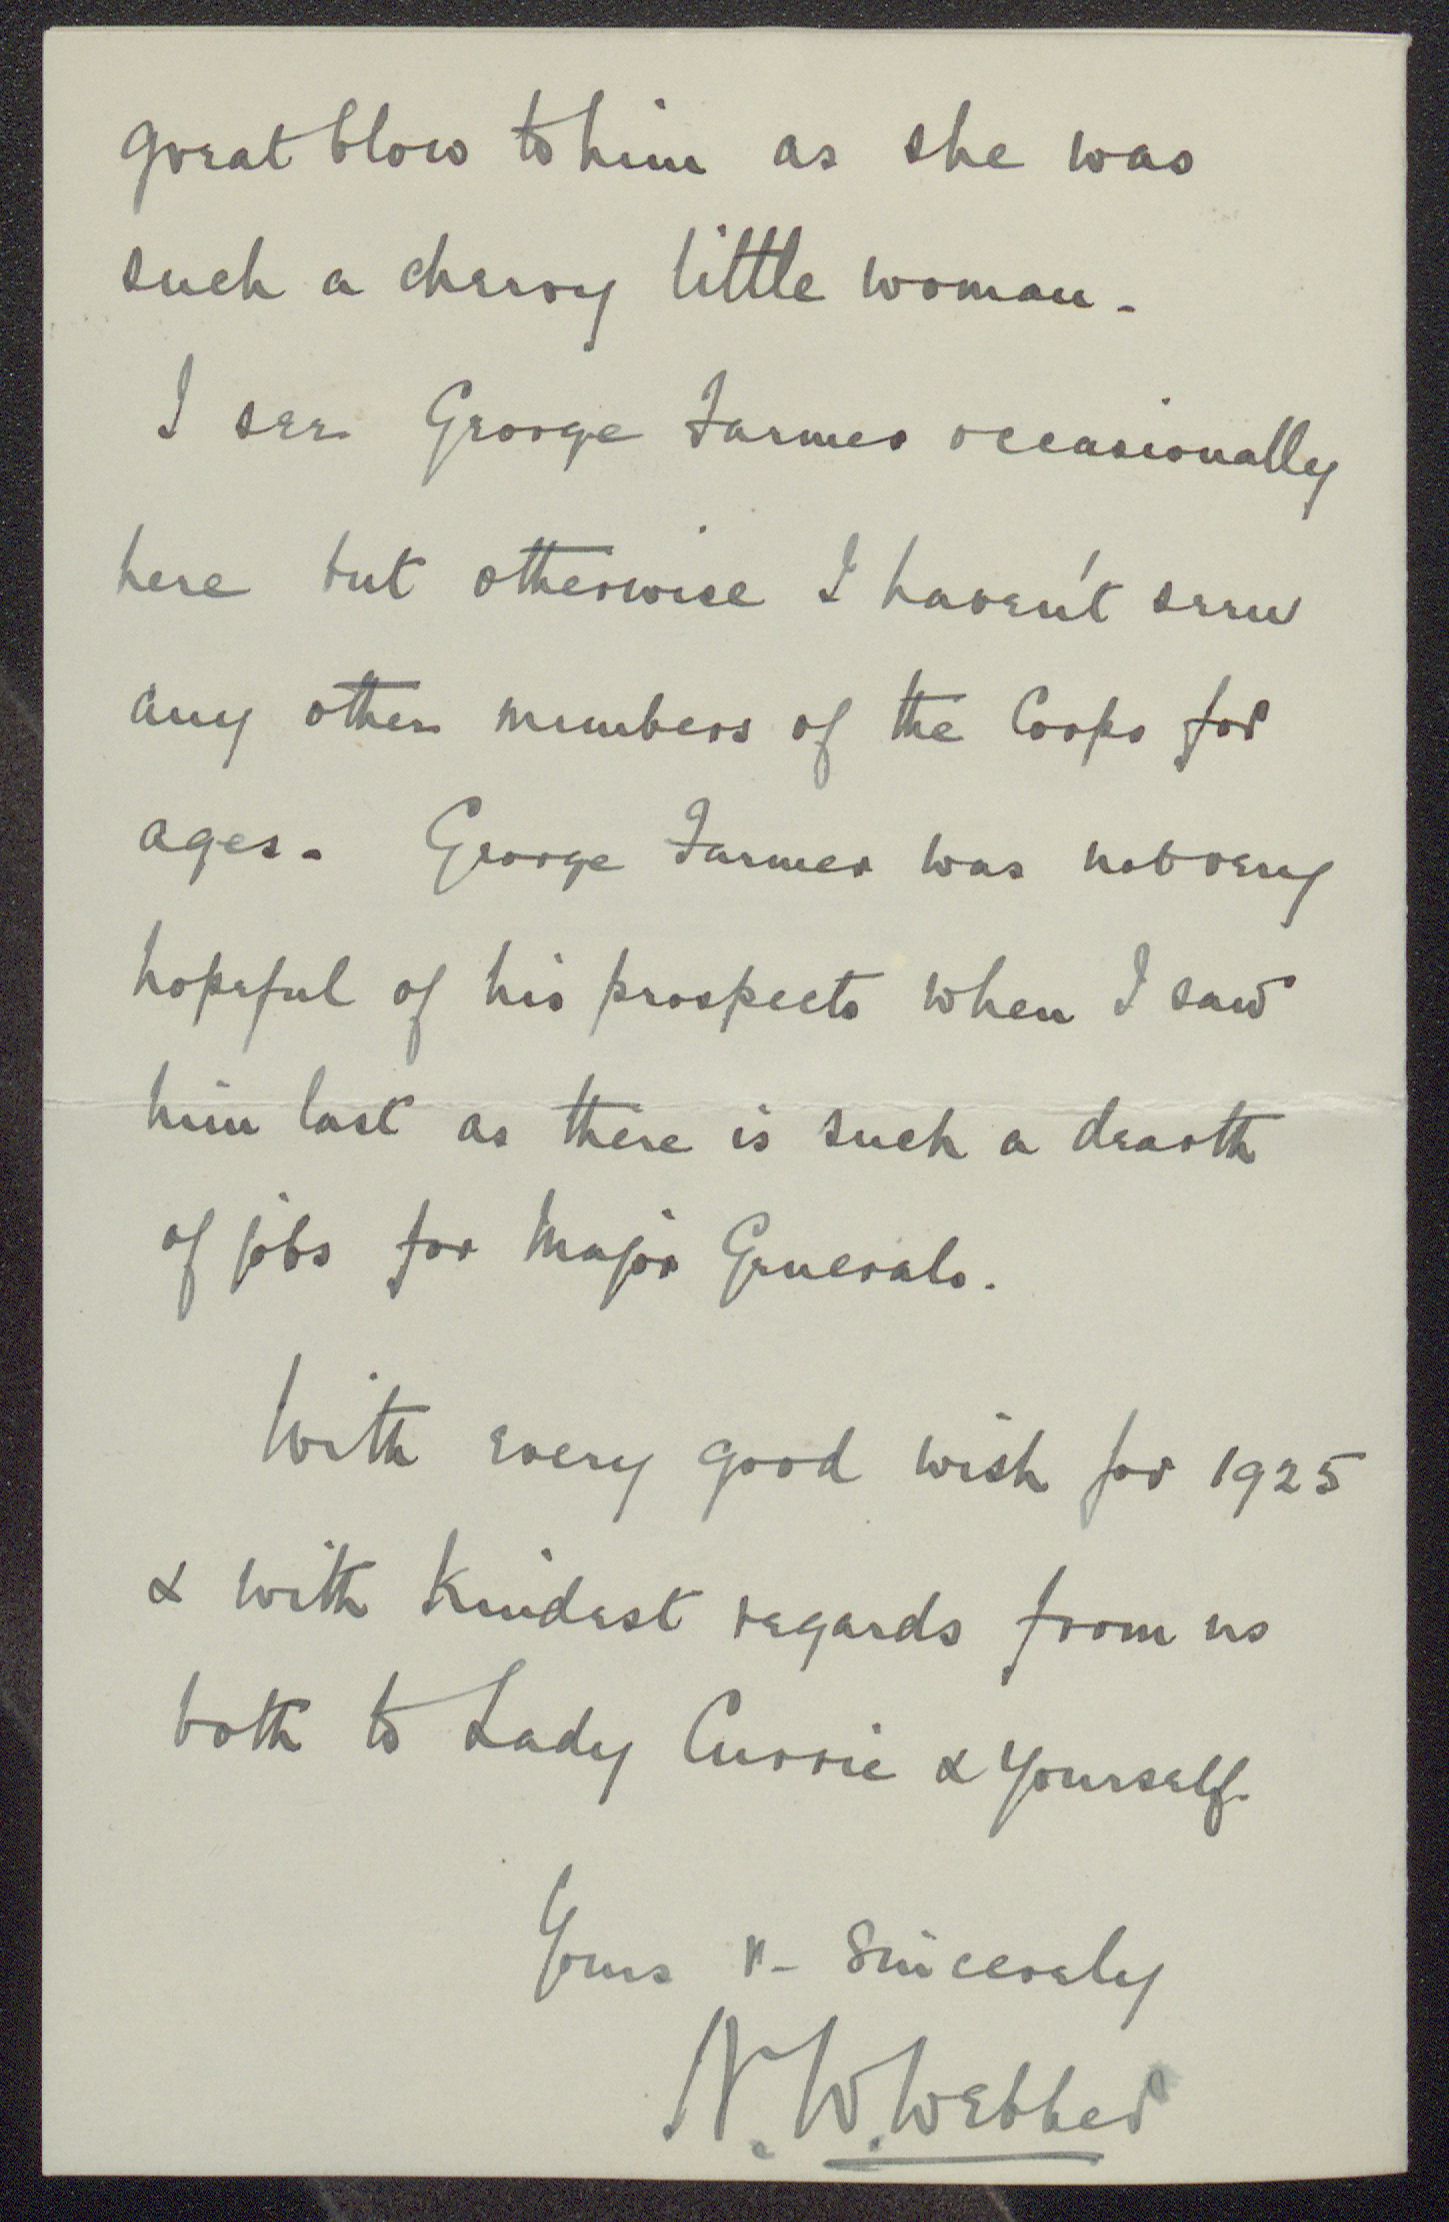 great blow to him as she was
such a cheery little woman -
I see George Farmer occasionally
here but otherwise I haven't seen
any other members of the Corps for
ages - George Farmer was not very
hopeful of his prospects when I saw
him last as there is such a dearth
of jobs for Major Generals.
With every good wish for 1925
& with kindest regards from us
both to Lady Currie & Yourself.
Yours v- sincerely
N. W. Webber